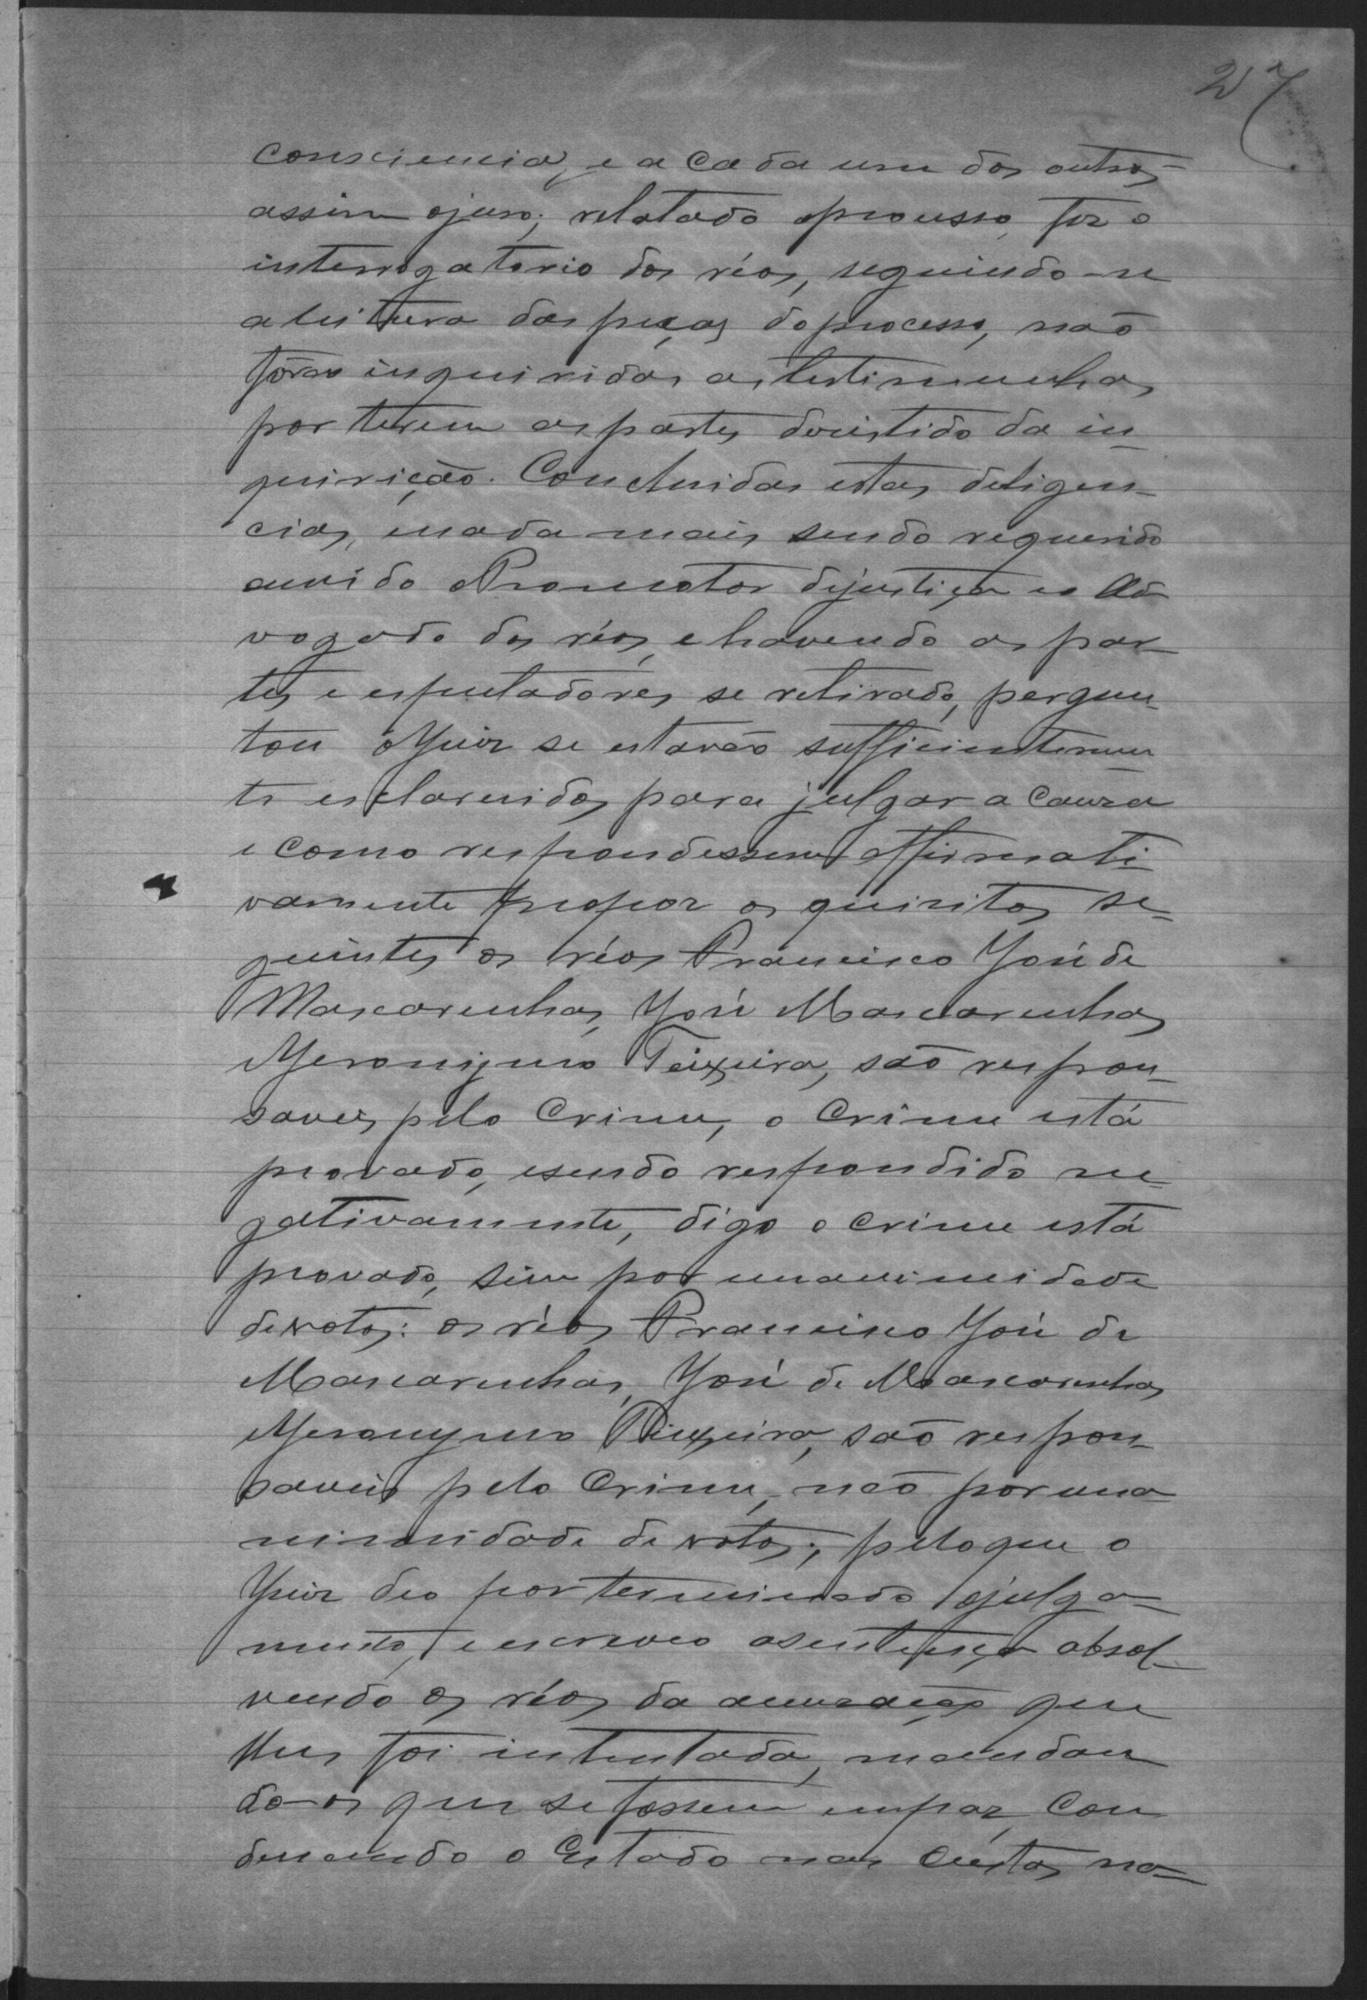 27
consciencia, e a cada um dos outros
assim o juro; relatado o processo, fez o
interrogatorio dos réos, seguindo-se
a leitura das peças do processo, não
fôrão inquiridas as testimunhas,
por terem as partes desistido da in-
quirição. Concluidas estas deligen-
cias, e nada mais sendo requerido
ouvido o Promotor dejustiça e o Ad-
vogado dos réos, e havendo as par-
tes e espectadores se retirado, pergun-
tou o Juiz se estavão sufficientemen-
te esclarecidos para julgar a Causa
e como respondessem affirmati-
vamente propoz os quizitos se-
guintes os réos Francisco José de
Mascarenhas, José Mascarenhas
Jeronymo Teixeira, são respon-
saveis pelo Crime, o Crime está
provado, e sendo respondido ne-
gativamente, digo o crime está
provado, sim por unanimidade
de votos: os réos Francisco José de
Mascarenhas, José de Mascarenhas
Jeronymo Teixeira, são respon-
saveis pelo Crime, não por una-
nimidade de votos; pelo que o
Juiz deo por terminado o julga-
mento, e escreveo a sentença absol-
vendo os réos da accuzação que
lhes foi intentada, mandan
do-os que se fossem em paz, Con
denando o Estado nas Custas na-